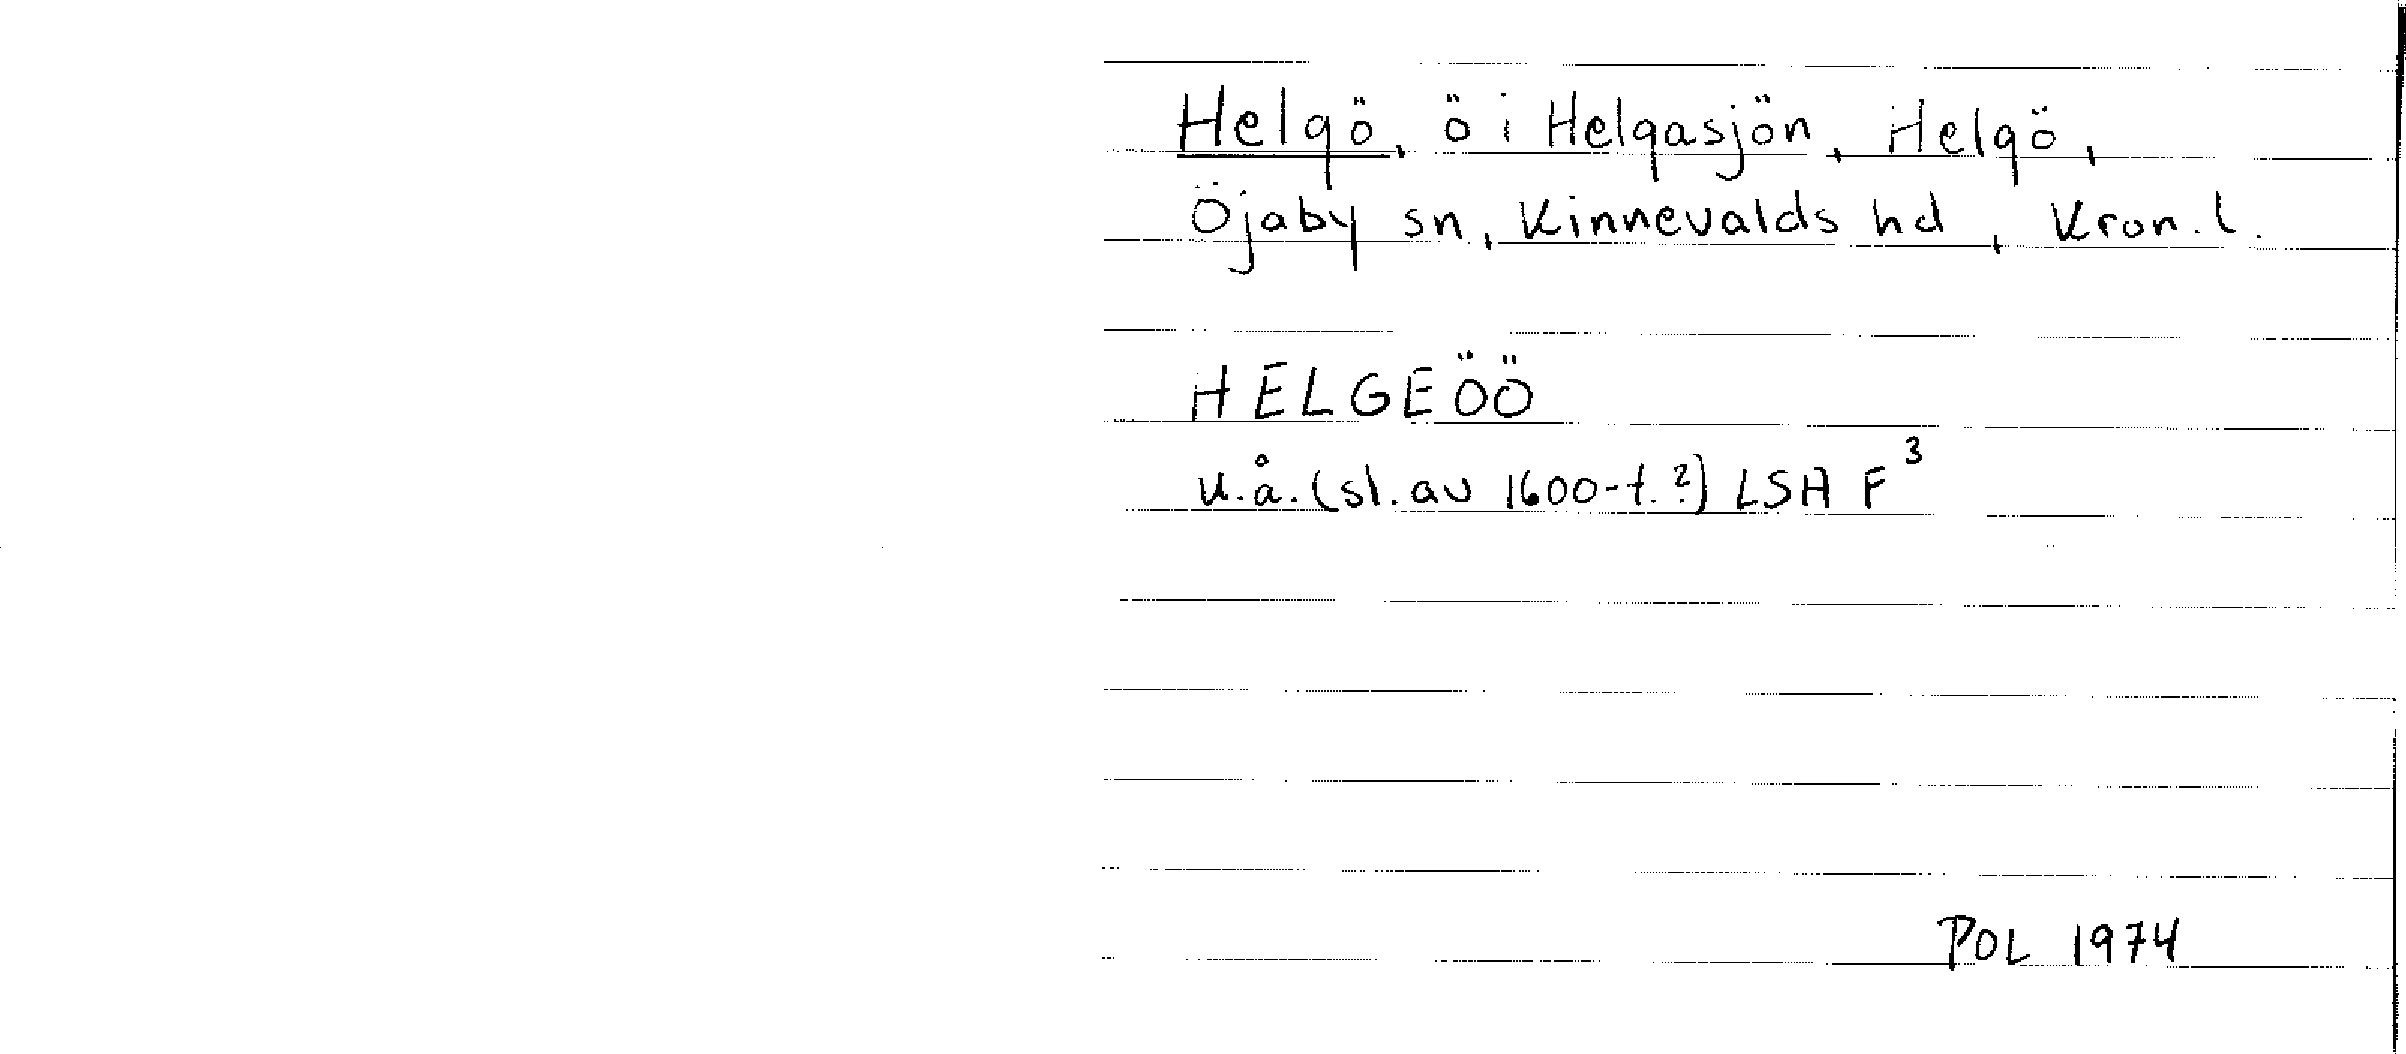 Helgö, ö i Helgasjön, Helgö,
Öjaby sn, Kinnevalds hd, Kron. l.
HELGEÖÖ
u.å. (sl. av 1600-t.?) LSA F³
POL 1974